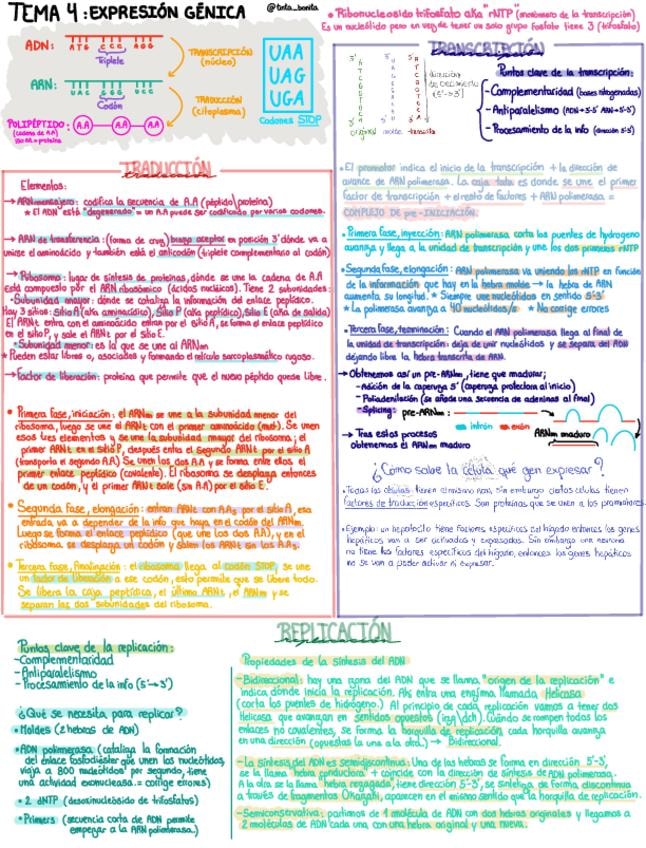 TEMA 4: EXPRESIÓN GÉNICA
@tinta_bonita
ADN:
ATG CCC AGG
Triplete
TRANSCRIPCIÓN
(núcleo)
ARN:
UAC GGG UCC
Codón
TRADUCCIÓN
(citoplasma)
POLIPÉPTIDO:
(cadena de A.A)
A.A A.A A.A
UAA
UAG
UGA
Codones STOP
• Ribonucleosido trifosfato aka "rNTP" (monómero de la transcripción)
Es un nucleótido pero en vez de tener un solo grupo fosfato tiene 3 (trifosfato)
TRANSCRIPCIÓN
dirección
de crecimiento
(5'→3')
Puntos clave de la transcripción:
-Complementariedad (bases nitrogenadas)
-Procesamiento de la info (dirección 5'-3')
• El promotor indica el inicio de la transcripción + la dirección de
avance de ARN polimerasa. La caja tata es donde se une el primer
factor de transcripción + el resto de factores + ARN polimerasa =
COMPLEJO DE pre-INICIACIÓN.
• Primera fase, inyección: ARN polimerasa corta los puentes de hidrógeno
avanza y llega a la unidad de transcripción y une los dos primeros rNTP
• Segunda fase, elongación: ARN polimerasa va uniendo los rNTP en función
de la información que hay en la hebra molde → la hebra de ARN
aumenta su longitud. * Siempre une nucleótidos en sentido 5'-3'
* La polimerasa avanza a 40 nucleótidos/s * No corrige errores
• Tercera fase, terminación: Cuando el ARN polimerasa llega al final de
la unidad de transcripción: deja de unir nucleótidos y se separa del ADN
dejando libre la hebra transcrita de ARN.
→ Obtenemos así un pre-ARNm, tiene que madurar:
- Adición de la caperuza 5' (caperuza protectora al inicio)
- Poliadenilación (se añade una secuencia de adeninas al final)
- Splicing: pre-ARNm:
intrón exón
ARNm maduro
→ Tras estos procesos
obtenemos el ARNm maduro
¿Cómo sabe la célula qué gen expresar?
• Todas las células tienen el mismo ADN, sin embargo ciertas células tienen
factores de traducción específicos. Son proteínas que se unen a los promotores.
• Ejemplo: un hepatocito tiene factores específicos del hígado entonces los genes
hepáticos van a ser activados y expresados. Sin embargo una neurona
no tiene los factores específicos del hígado, entonces los genes hepáticos
no se van a poder activar ni expresar.
TRADUCCIÓN
Elementos:
→ ARN mensajero: codifica la secuencia de A.A (péptido\proteína)
* El ADN está "degenerado" = un A.A puede ser codificado por varios codones.
→ ARN de transferencia: (forma de cruz) brazo aceptor en posición 3' dónde va a
unirse el aminoácido y también está el anticodón (triplete complementario al codón)
→ Ribosoma: lugar de síntesis de proteínas, dónde se une la cadena de A.A
Está compuesto por el ARN ribosómico (ácidos nucleicos). Tiene 2 subunidades:
• Subunidad mayor: dónde se cataliza la información del enlace peptídico.
Hay 3 sitios: Sitio A (aka aminoacídico), Sitio P (aka peptídico), Sitio E (aka de salida)
El ARNt entra con el aminoácido entran por el sitio A, se forma el enlace peptídico
en el sitio P, y sale el ARNt por el sitio E.
• Subunidad menor: es la que se une al ARNm
* Pueden estar libres o, asociados y formando el retículo sarcoplasmático rugoso.
→ Factor de liberación: proteína que permite que el nuevo péptido quese libre.
• Primera fase, iniciación: el ARNm se une a la subunidad menor del
ribosoma, luego se une el ARNt con el primer aminoácido (met). Se unen
esos tres elementos y se une la subunidad mayor del ribosoma; el
primer ARNt en el sitio P, después entra el segundo ARNt por el sitio A
(transporta el segundo A.A) Se unen los dos A.A y se forma entre ellos el
primer enlace peptídico (covalente). El ribosoma se desplaza entonces
de un codón, y el primer ARNt sale (sin A.A) por el sitio E.
• Segunda fase, elongación: entran ARNt con A.As por el sitio A, esa
entrada va a depender de la info que haya en el codón del ARNm.
Luego se forma el enlace peptídico (que une los dos A.A), y en el
ribosoma se desplaza un codón y salen los ARNt sin los A.As.
• Tercera fase, finalización: el ribosoma llega al codón STOP, se une
un factor de liberación a ese codón, esto permite que se libere todo.
Se libera la caja peptídica, el último ARNt, el ARNm y se
separan las dos subunidades del ribosoma.
REPLICACIÓN
Puntos clave de la replicación:
-Complementariedad
-Antiparalelismo
-Procesamiento de la info (5'→3')
¿Qué se necesita para replicar?
• Moldes (2 hebras de ADN)
• ADN polimerasa (cataliza la formación
del enlace fosfodiéster que unen los nucleótidos,
viaja a 800 nucleótidos por segundo, tiene
una actividad exonucleasa = corrige errores)
• 2 dNTP (desoxinucleósido de trifosfatos)
• Primers (secuencia corta de ADN permite
empezar a la ARN polimerasa..)
Propiedades de la síntesis del ADN
-Bidireccional: hay una rama del ADN que se llama, "origen de la replicación" e
indica dónde inicia la replicación. Ahí entra una enzima llamada Helicasa
(corta los puentes de hidrógeno.) Al principio de cada replicación vamos a tener dos
Helicasa que avanzan en sentidos opuestos (izq\dch). Cuándo se rompen todos los
enlaces no covalentes, se forma la horquilla de replicación cada horquilla avanza
en una dirección (opuestas la una a la otra.) → Bidireccional.
-La síntesis del ADN es semidiscontinua: Una de las hebras se forma en dirección 5'-3',
se la llama hebra conductora + coincide con la dirección de síntesis de ADN polimerasa.
A la otra se la llama "hebra rezagada", tiene dirección 5'-3', se sintetiza de forma discontinua
a través de fragmentos Okazaki, aparecen en el mismo sentido que la horquilla de replicación.
-Semiconservativa: partimos de 1 molécula de ADN con dos hebras originales y llegamos a
2 moléculas de ADN cada una con una hebra original y una nueva.